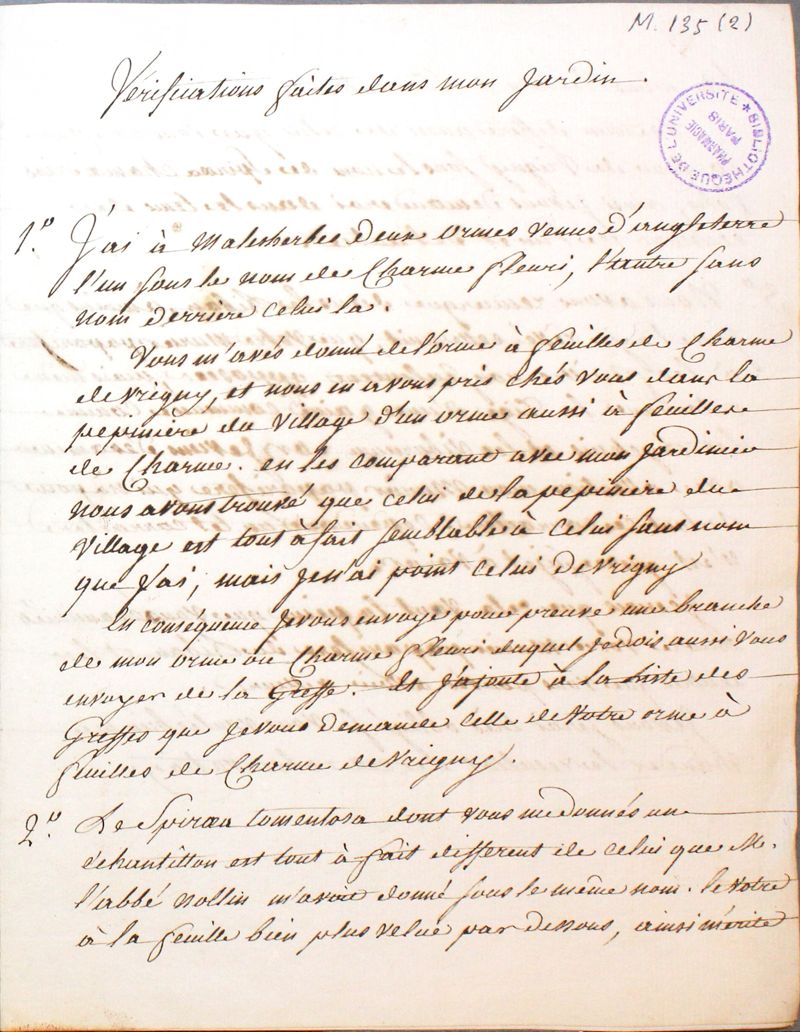 M. 135 (2)
Vérifications faites dans mon Jardin.
BIBLIOTHÈQUE DE L'UNIVERSITÉ ★
PHARMACIE
PARIS
1.º J'ai à Malesherbes deux ormes venus d'angleterre
l'un sous le nom de Charme fleuri, l'autre sans
nom derrière celui la.
Vous m'avés donné de l'orme à feuilles de Charme
de vrigny, et nous en avons pris chés vous dans la
pepinière du village d'un orme aussi à feuilles
de Charme. en les comparant avec mon jardinier
nous avons trouvé que celui de la pepiniere du
village est tout à fait semblable à celui sans nom
que j'ai, mais je n'ai point celui de vrigny
En conséquence je vous envoye pour preuve une branche
de mon orme ou Charme fleuri duquel je dois aussi vous
envoyer de la Greffe. Et j'ajoute à la Liste des
Greffes que je vous demande celle de votre orme à
feuilles de Charme de vrigny.
2.º Le Spiræa tomentosa dont vous me donnés un
échantillon est tout à fait different de celui que M.
l'abbé nollin m'avoit donné sous le même nom. le votre
à la feuille bien plus velue par dessous, ainsi mérite